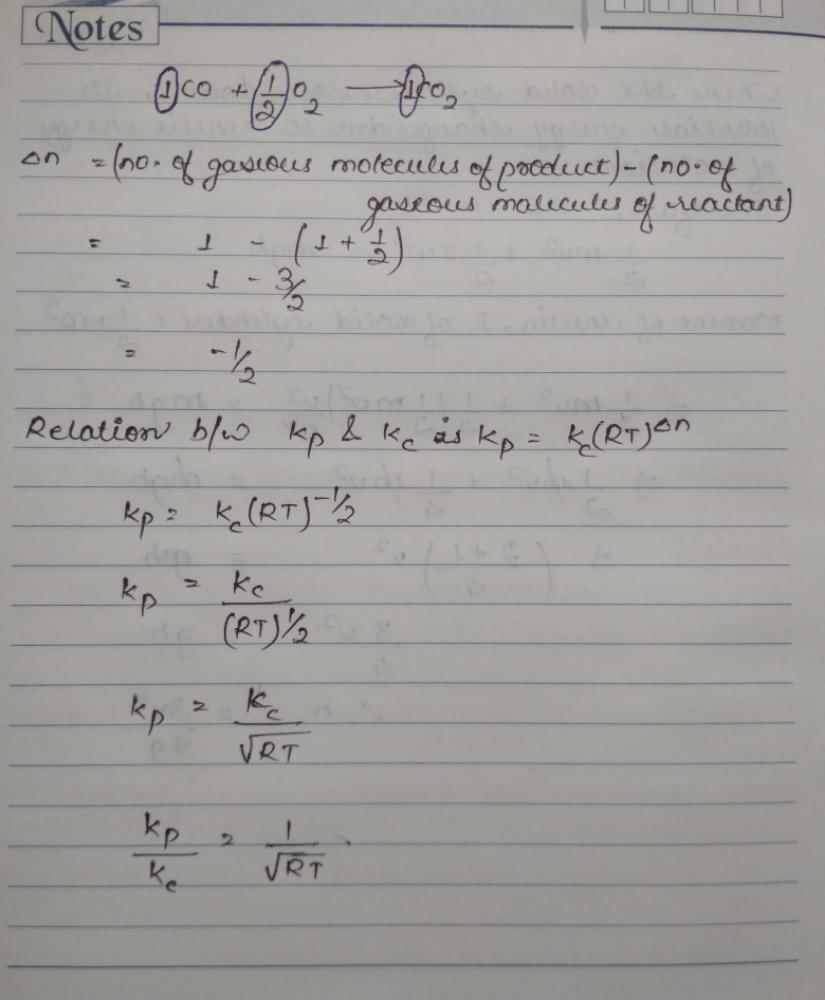 Notes
1CO + 1/2 O₂ → 1CO₂
Δn = (no. of gaseous molecules of product) - (no. of
gaseous molecules of reactant)
= 1 - (1 + 1/2)
= 1 - 3/2
= -1/2
Relation b/w Kp & Kc is Kp = Kc(RT)^Δn
Kp = Kc(RT)^-1/2
Kp = Kc/(RT)^1/2
Kp = Kc/√RT
Kp/Kc = 1/√RT